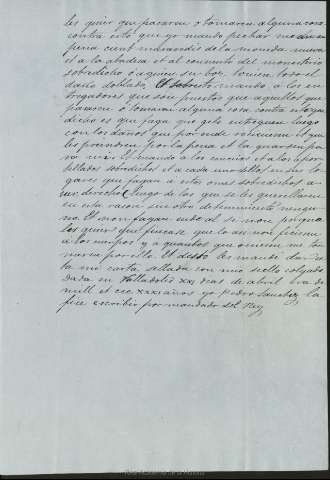 les quier que pasaren o tomaren alguna cosa
contra esto que yo mando pechar me an en
pena cient maravedis de la moneda nueva
et a la abadesa et al conuento del monesterio
sobredicho o a quien su boz touier todo el
daño doblado. Et sobresto mando a los en
tregadores que son puestos que aquellos que
pasaren o tomaren alguna cosa contra esto que
dicho es que faga que gelo entreguen luego
con los daños que por ende reciuieren et que
les prendren por la pena et la guarden para
mi et mando a los conceios et a los apor
tellados sobredichos et a cada uno dellos en sus lo
gares que fagan a estos omes sobredichos a
uer derecho luego de los que se les querellaren
en esta razon sin otro detenimiento ningu
no. Et non fagan ende al se non por qual
les quier que fincase que lo asi non ficiesen
a los cuerpos y a quantos que ouiesen me tor
naria por ello. Et desto les mandé dar es
ta mi carta sellada con mio siello colgado
Dada en Valladolid XXI dias de abril era de
mill et ccc xxxi años yo Pedro Sanchez la
fice escribir por mandado del Rey